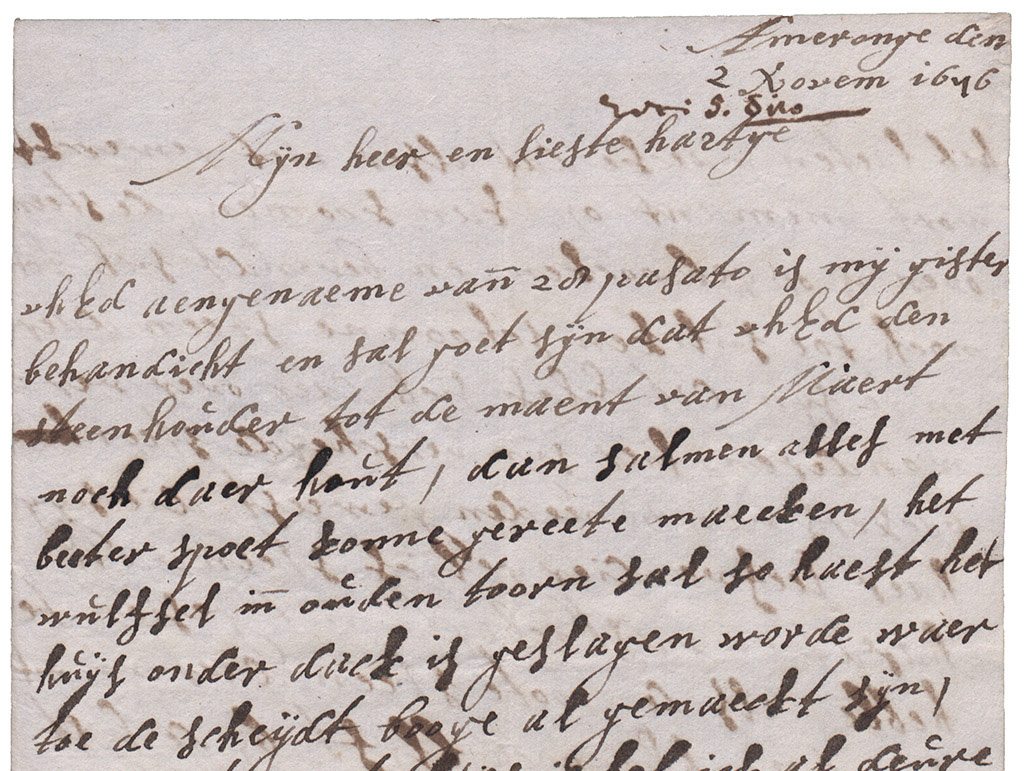 Ameronge den
2 Novem 1676
Mÿn heer en lieste hartge
uhEd aengenaeme vañ 28 pasato is mÿ gister
behandicht en sal goet sÿn dat uhEd den
steenhoŭder tot de maent van Maert
noch daer hout, dan salmen alles met
beeter spoet konne gereete maecken, het
wŭlfsel in̄ oŭden toorn sal so haest het
huÿs onder dack is geslagen worde waer
toe de scheÿdt booge al gemaeckt sÿn,
deŭre